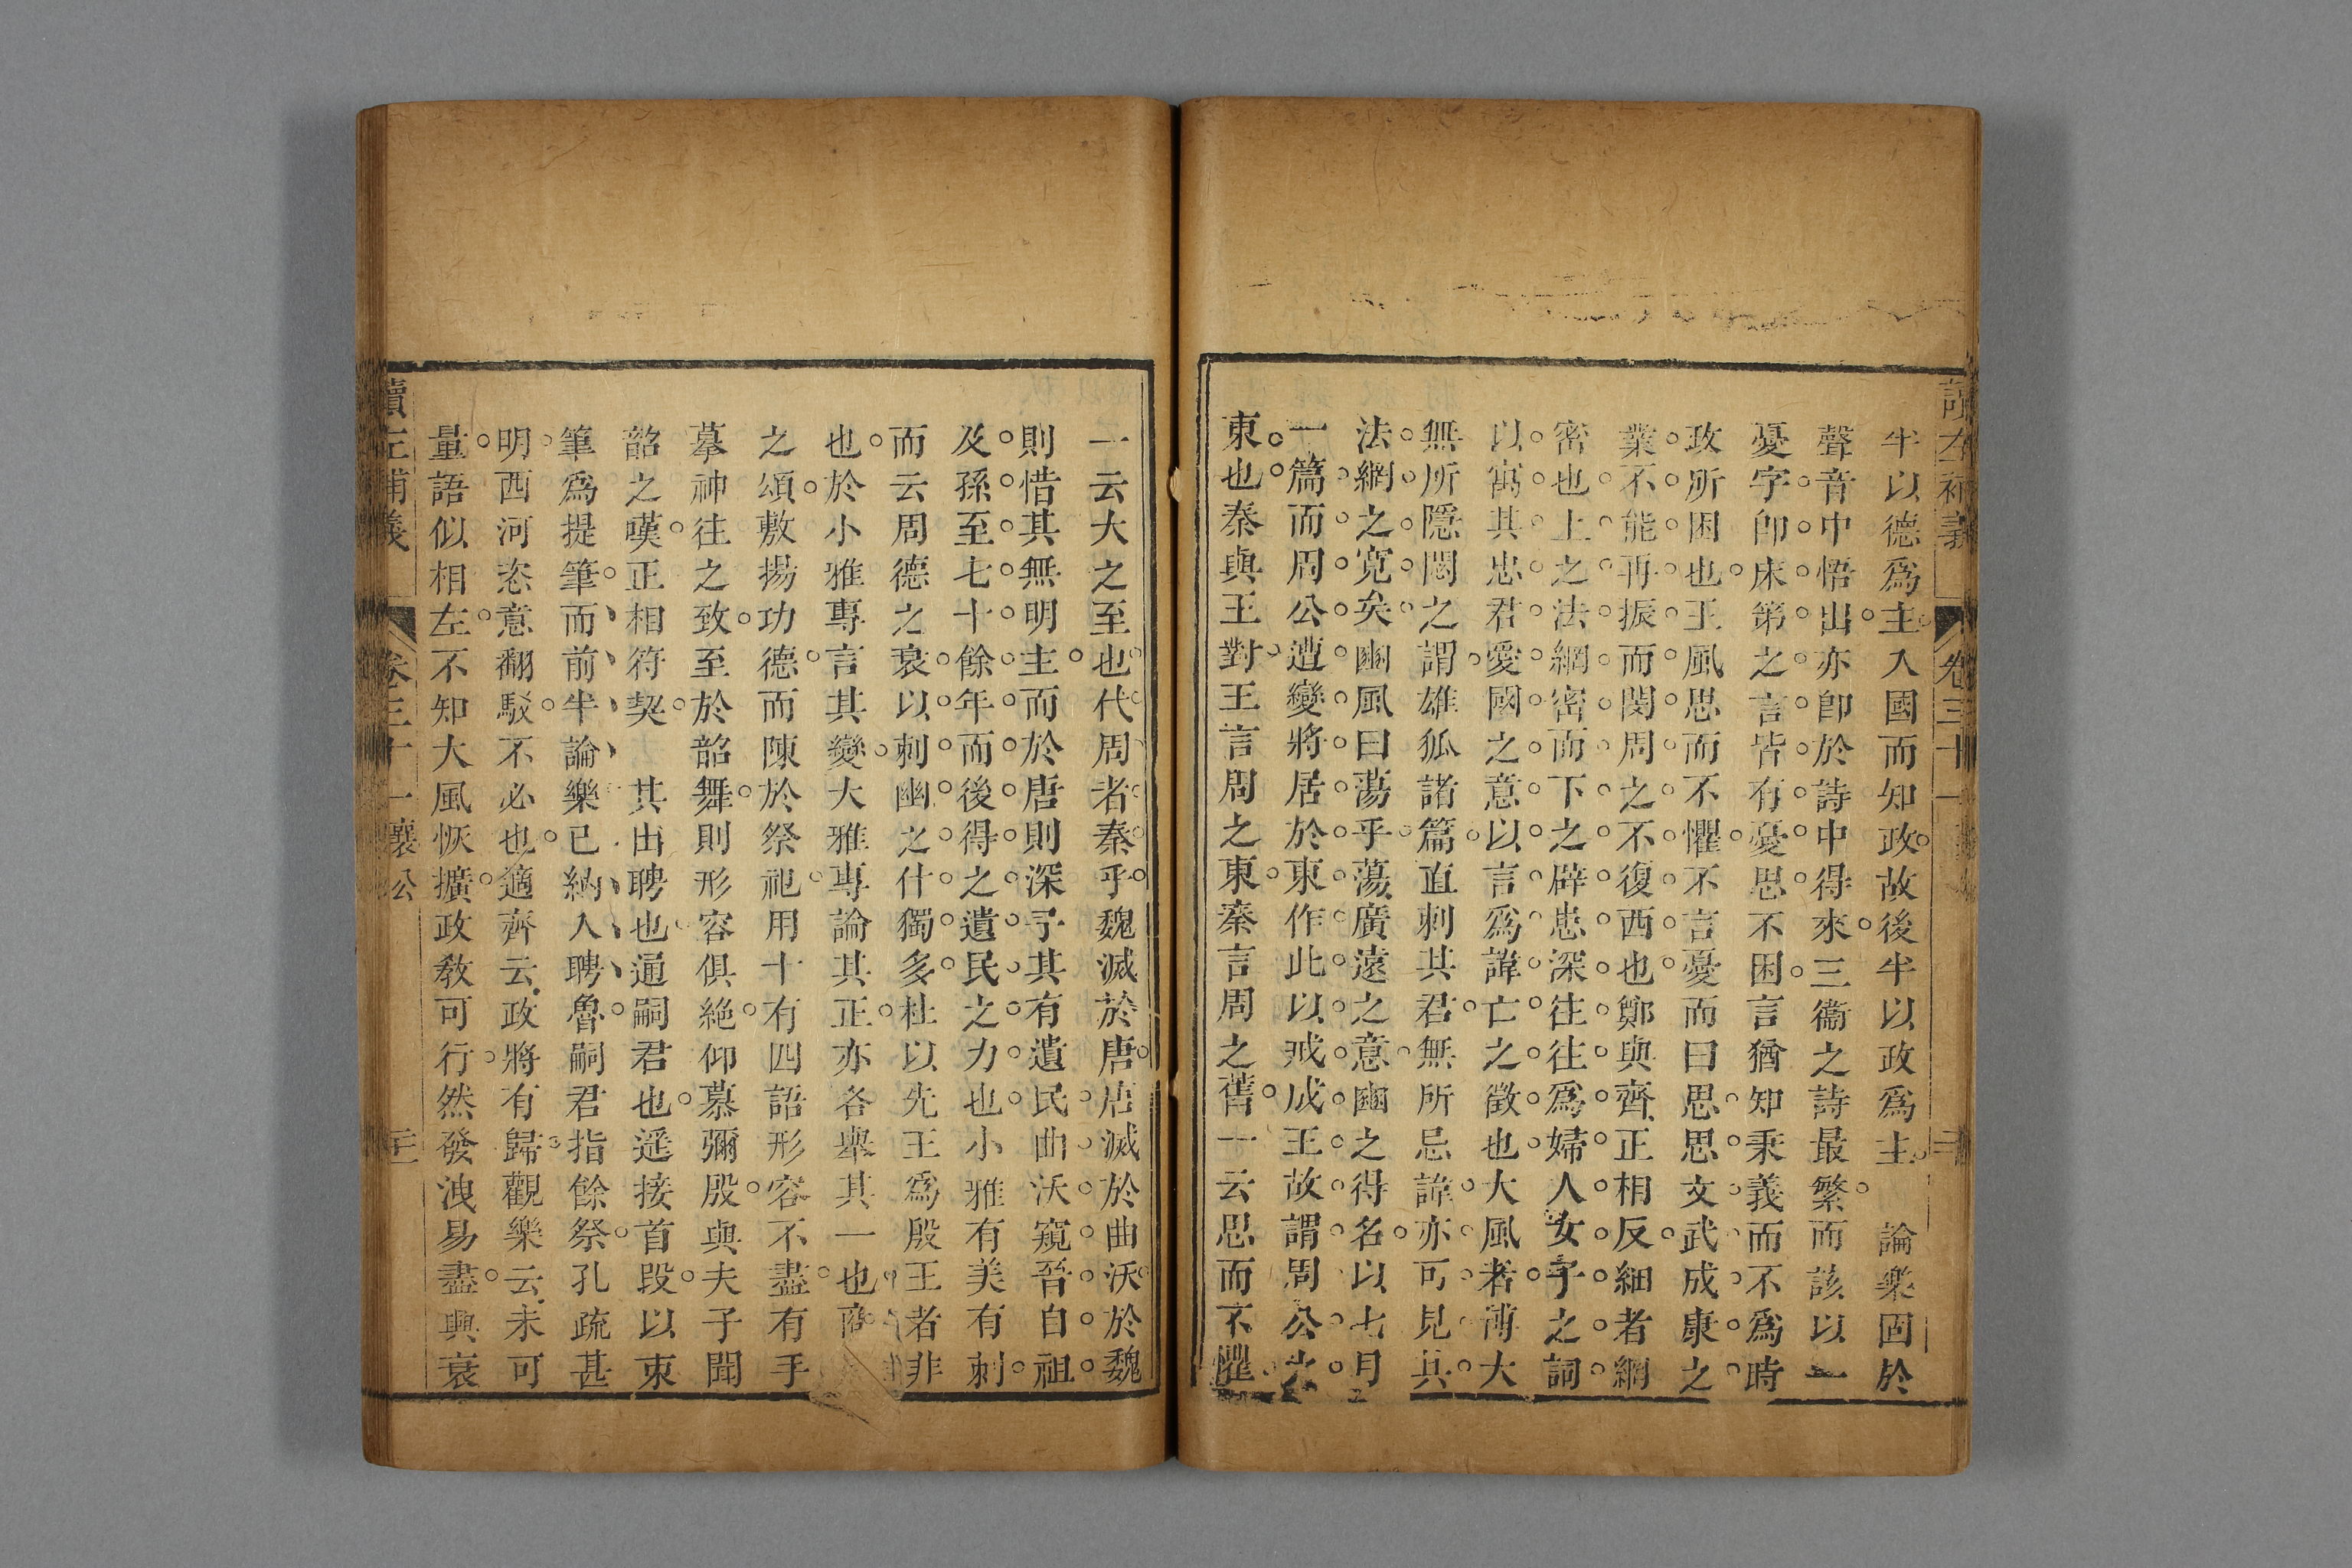 讀左補義 卷三十一
半以德爲主入國而知政故後半以政爲主 論樂固於
聲音中悟出亦卽於詩中得來三衞之詩最繁而該以一
憂字卽床第之言皆有憂思不困言猶知秉義而不爲時
政所困也王風思而不懼不言憂而曰思思文武成康之
業不能再振而閔周之不復西也鄭與齊正相反細者網
密也上之法網密而下之辟患深往往爲婦人女子之詞
以寓其忠君愛國之意以言爲諱亡之徵也大風者薄大
無所隱閟之謂雄狐諸篇直刺其君無所忌諱亦可見其
法網之寛矣豳風曰蕩乎蕩廣遠之意豳之得名以七月
一篇而周公遭變將居於東作此以戒成王故謂周公
東也秦與王對王言周之東秦言周之舊一云思而不懼
一云大之至也代周者秦乎魏滅於唐唐滅於曲沃於魏
則惜其無明主而於唐則深予其有遺民曲沃窺晉自祖
及孫至七十餘年而後得之遺民之力也小雅有美有刺
而云周德之衰以刺幽之什獨多杜以先王爲殷王者非
也於小雅專言其變大雅專論其正亦各舉其一也商
之頌敷揚功德而陳於祭祀用十有四語形容不盡有手
摹神往之致至於韶舞則形容俱絶仰慕彌殷與夫子聞
韶之嘆正相符契 其出聘也通嗣君也遥接首段以束
筆爲提筆而前半論樂已納入聘魯嗣君指餘祭孔疏甚
明西河恣意翻駁不必也適齊云政將有歸觀樂云未可
量語似相左不知大風恢擴政敎可行然發洩易盡興衰
讀左補義 卷三十一 襄公 三